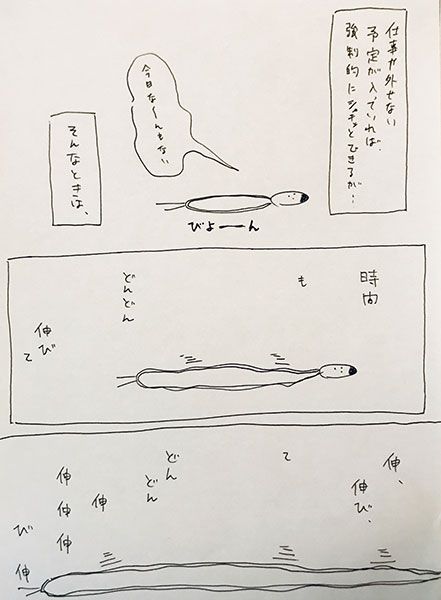 仕事か外せない
予定が入っていれば、
強制的にシャキッとできるが…
今日な〜んもない
びよーん
そんなときは、
時間
も
どんどん
伸び
て
伸、
伸び、
て
どん
どん
伸
伸伸伸
び
伸